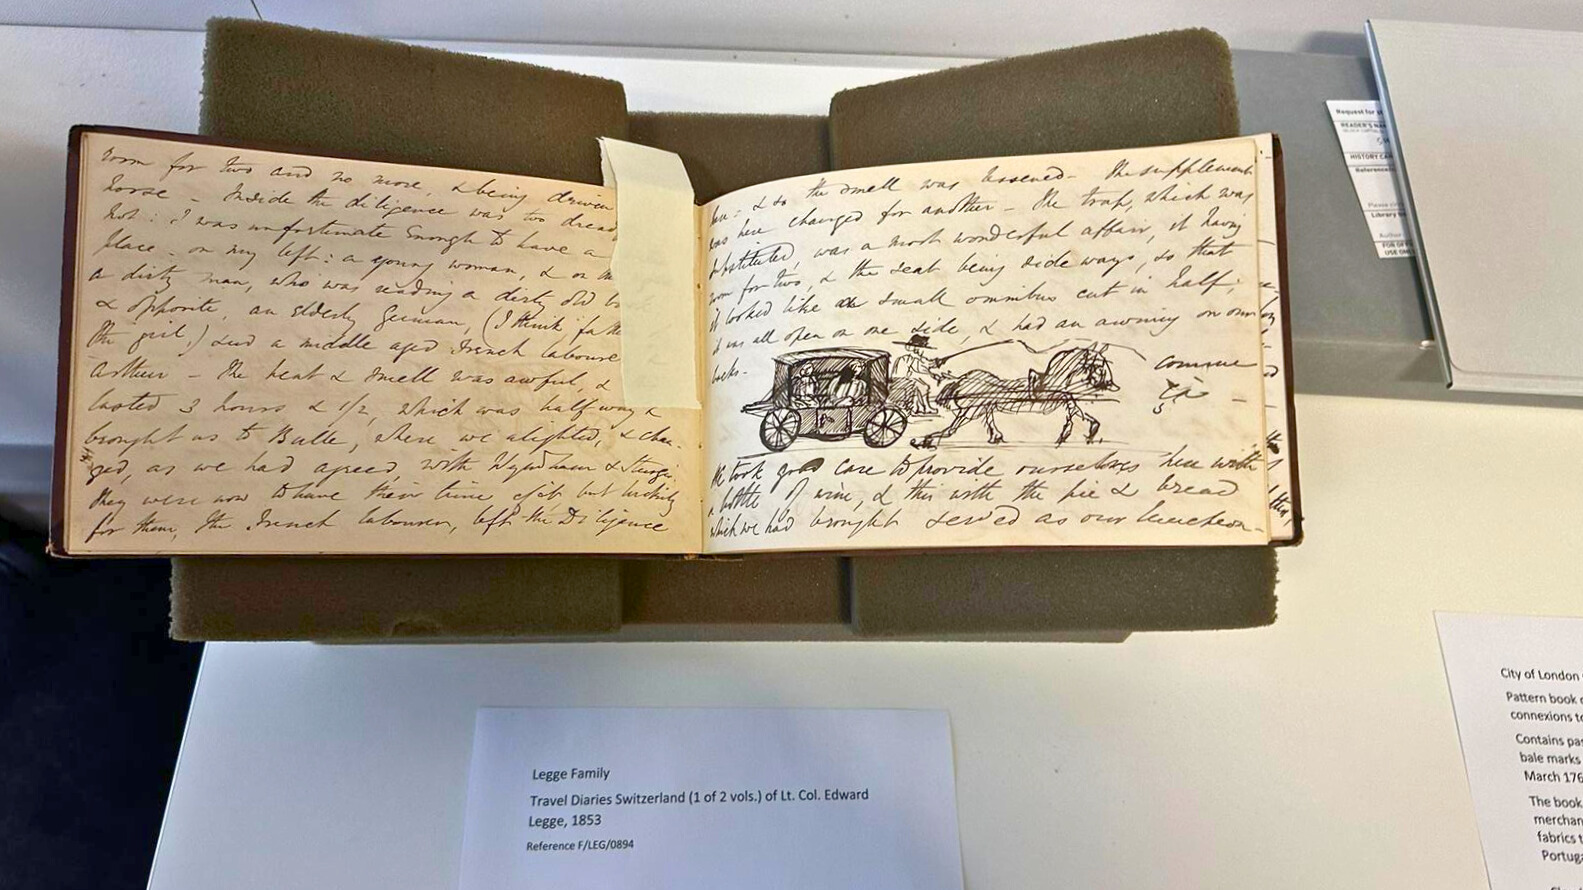 room for two and no more, & being driven
horse - Inside the diligence was too dread
hot: I was unfortunate enough to have a
place - on my left: a young woman, & on
a dirty man, who was reading a dirty old
& opposite, an elderly German, (I think fa
the girl,) and a middle aged French laboure
Arthur - The heat & smell was awful, &
lasted 3 hours & 1/2, which was half way &
brought us to Bulle, where we alighted, & chan-
ged, as we had agreed, with Wyndham & Sturgi
they were now to have their turn of it but luckily
for them, the French labourer, left the Diligence
& so the smell was lessened - The supplement
was here changed for another - The trap, which was
substituted, was a most wonderful affair, it having
room for two, & the seat being side ways, so that
it looked like small omnibus cut in half;
it was all open on one side, & had an awning on our
backs -
comme
We took good care to provide ourselves here with
a bottle of wine, & this with the pie & bread
which we had brought served as our luncheon -
Request for
READER'S
HISTORY
Library
USE
Legge Family
Travel Diaries Switzerland (1 of 2 vols.) of Lt. Col. Edward
Legge, 1853
Reference F/LEG/0894
City of London
Pattern book
connexions to
Contains pa
bale marks
March 176
The book
merchan
fabrics t
Portug